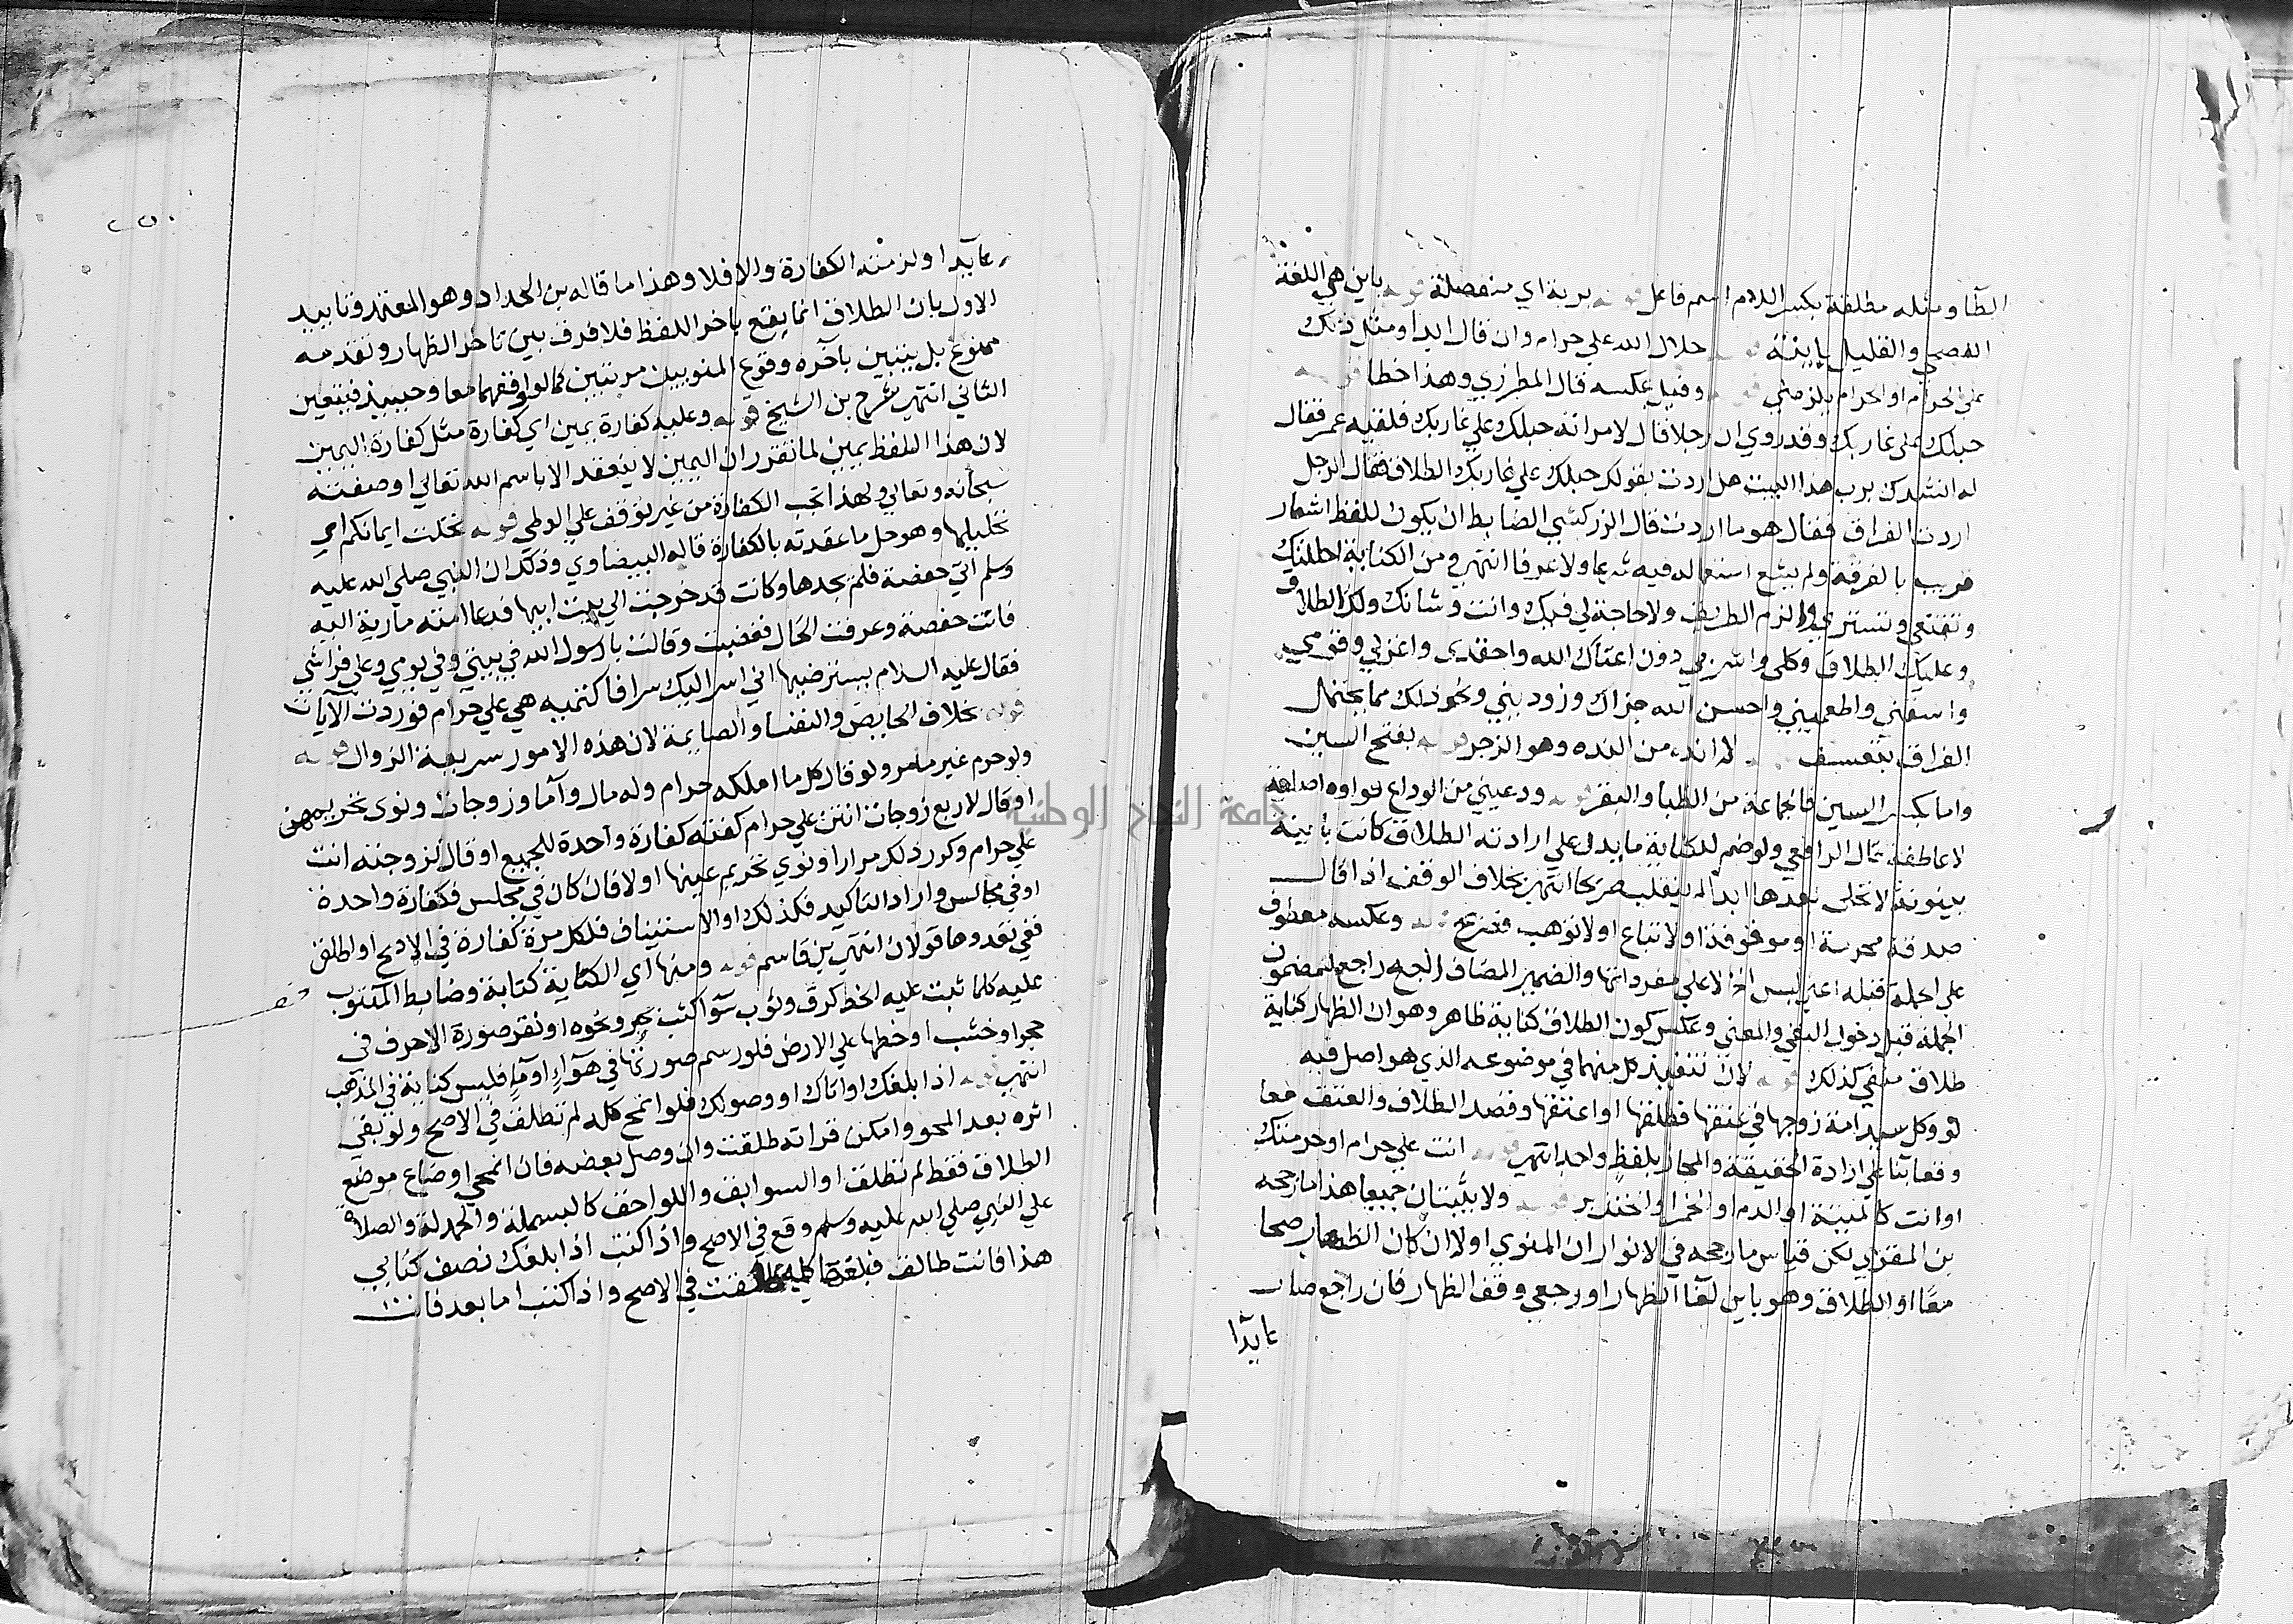 الطا ومثله مطلقة بكسر اللام اسم فاعل قوله برية اي منفصلة قوله باين هي اللغة
الفصحي والقليل باينة قوله حلال الله علي حرام وان قال ابدا ومثل ذلك
علي الحرام او الحرام يلزمني وقيل عكسه قال المطرزي وهذا خطا قوله
حبلك علي غاربك وقد روي ان رجلا قال لامراته حبلك علي غاربك فلقيه عمر فقال
له انشدك برب هذا البيت هل اردت بقولك حبلك علي غاربك الطلاق فقال الرجل
اردت الفراق فقال هو ما اردت قال الزركشي الضابط ان يكون للفظ اشعار
قريب بالفرقة ولم يشع استعماله فيه شرعا ولا عرفا انتهي ومن الكناية احللتك
وتقنعي وتستري والزم الطريق ولا حاجة لي فيك وانت وشانك ولك الطلاق
وعليك الطلاق وكلي واشربي دون اغناك الله واقعدي واغزلي وقومي
واسقني واطعميني واحسن الله جزاك وزوديني ونحو ذلك مما يحتمل
الفراق بتعسف لا انده من النده وهو الزجر قوله بفتح السين
واما بكسر السين فالجماعة من الظبا والبقر قوله ودعيني من الوداع فواوه اصلية
لا عاطفة قال الرافعي ولو ضم للكناية ما يدل علي ارادته الطلاق كانت باينة
بينونة لا تحلي بعدها ابدا لم ينقلب صريحا انتهي بخلاف الوقف اذا قال
صدقة محرمة او موقوفة او لا تباع او لا توهب فصريح قوله وعكسه معطوف
علي الجملة قبله اعني ليس الخ لا علي مفرداتها والضمير المضاف اليه راجع لمضمون
الجملة قبل دخول النفي والمعني وعكس كون الطلاق كناية ظاهر وهو ان الظهار كناية
طلاق منفي كذلك قوله لان تنفيذ كل منهما في موضوعه الذي هو اصل فيه
لو وكل سيد امة زوجها في عتقها فطلقها او اعتقها وقصد الطلاق والعتق معا
وقعا بنا علي ارادة الحقيقة والمجاز بلفظ واحد انتهي قوله انت علي حرام او حرمتك
او انت كالميتة او الدم او الخمر او الخنزير قوله ولا يثبتان جميعا هذا ما رجحه
بن المقري لكن قياس ما رجحه في الانوار ان المنوي اولا ان كان الظهار صحا
معا او الطلاق وهو باين لغا الظهار او رجعي وقف الظهار فان راجع صار
عايدا
٢٥٠
عايدا ولزمته الكفارة والا فلا وهذا ما قاله بن الحداد وهو المعتمد وتاييد
الاول بان الطلاق انما يقع باخر اللفظ فلا فرق بين تاخر الظهار وتقدمه
ممنوع بل يتبين بآخره وقوع المنويين مرتبين كما لو اوقعهما معا وحينيذ فيتعين
الثاني انتهي شرح بن الشيخ قوله وعليه كفارة يمين اي كفارة مثل كفارة اليمين
لان هذا اللفظ يمين لما تقرر ان اليمين لا ينعقد الا باسم الله تعالي او صفته
سبحانه وتعالي ولهذا تجب الكفارة من غير توقف علي الوطي قوله تحلت ايمانكم اي
تحليلها وهو حل ما عقدته بالكفارة قاله البيضاوي وذلك ان النبي صلي الله عليه
وسلم اتي حفصة فلم يجدها وكانت قد خرجت الي بيت ابيها فدعا امته مارية اليه
فاتت حفصة وعرفت الحال فغضبت وقالت يا رسول الله في بيتي وفي يومي وعلي فراشي
فقال عليه السلام يسترضيها اني اسر اليك سرا فاكتميه هي علي حرام فوردت الآيات
قوله بخلاف الحايض والنفسا والصايمة لان هذه الامور سريعة الزوال قوله
ولو حرم غير ما مر ولو قال كل ما املكه حرام وله مال وآما وزوجات ونوي تحريمهن
او قال لاربع زوجات انتن علي حرام كفته كفارة واحدة للجميع او قال لزوجته انت
علي حرام وكرر ذلك مرارا ونوي تحريم عينها اولا فان كان في مجلس فكفارة واحدة
او في مجالس واراد التاكيد فكذلك او الاستيناف فلكل مرة كفارة في الاصح او اطلق
ففي تعددها قولان انتهي بن قاسم قوله ومنها اي الكناية كتابة وضابط المكتوب
عليه كلما ثبت عليه الخط كرق وثوب سوآ كتب بحبر ونحوه او نقر صورة الاحرف في
حجر او خشب او خطها علي الارض فلو رسم صورتها في هوآء او مآء فليس كتابة في المذهب
انتهي قوله اذا بلغك او اتاك او وصولك فلو انمحي كله لم تطلق في الاصح ولو بقي
اثره بعد المحو وامكن قراته طلقت وان وصل بعضه فان انمحي او ضاع موضع
الطلاق فقط لم تطلق او السوابق واللواحق كالبسملة والحمدلة والصلاة
علي النبي صلي الله عليه وسلم وقع في الاصح واذا كتب اذا بلغك نصف كتابي
هذا فانت طالق فبلغها كله طلقت في الاصح واذا كتب اما بعد فانت
جامعة النجاح الوطنية